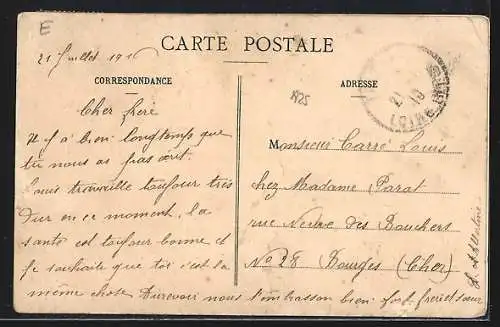 E
21 Juillet 191
CARTE POSTALE
CORRESPONDANCE
ADRESSE
Cher frère
Il y a bien longtemps que
tu nous as pas écrit.
Louis travaille toujour très
dur en ce moment, la
santé est toujour bonne et
je souhaite que toi c'est la
même chose. Aurevoir nous t'embrasson bien fort frère et sœur
Monsieur Carré Louis
chez Madame Parat
rue Neuve des Bouchers
No 28 Bourges (Cher)